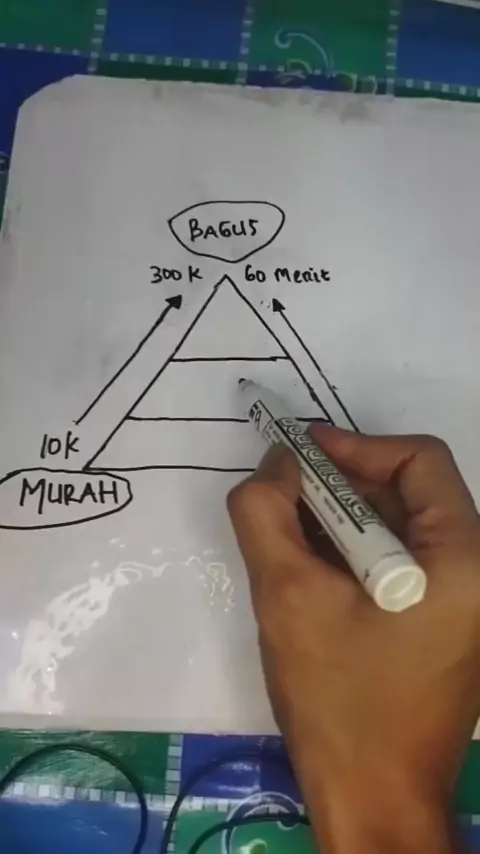 BAGUS
300K 60 Menit
10K
MURAH